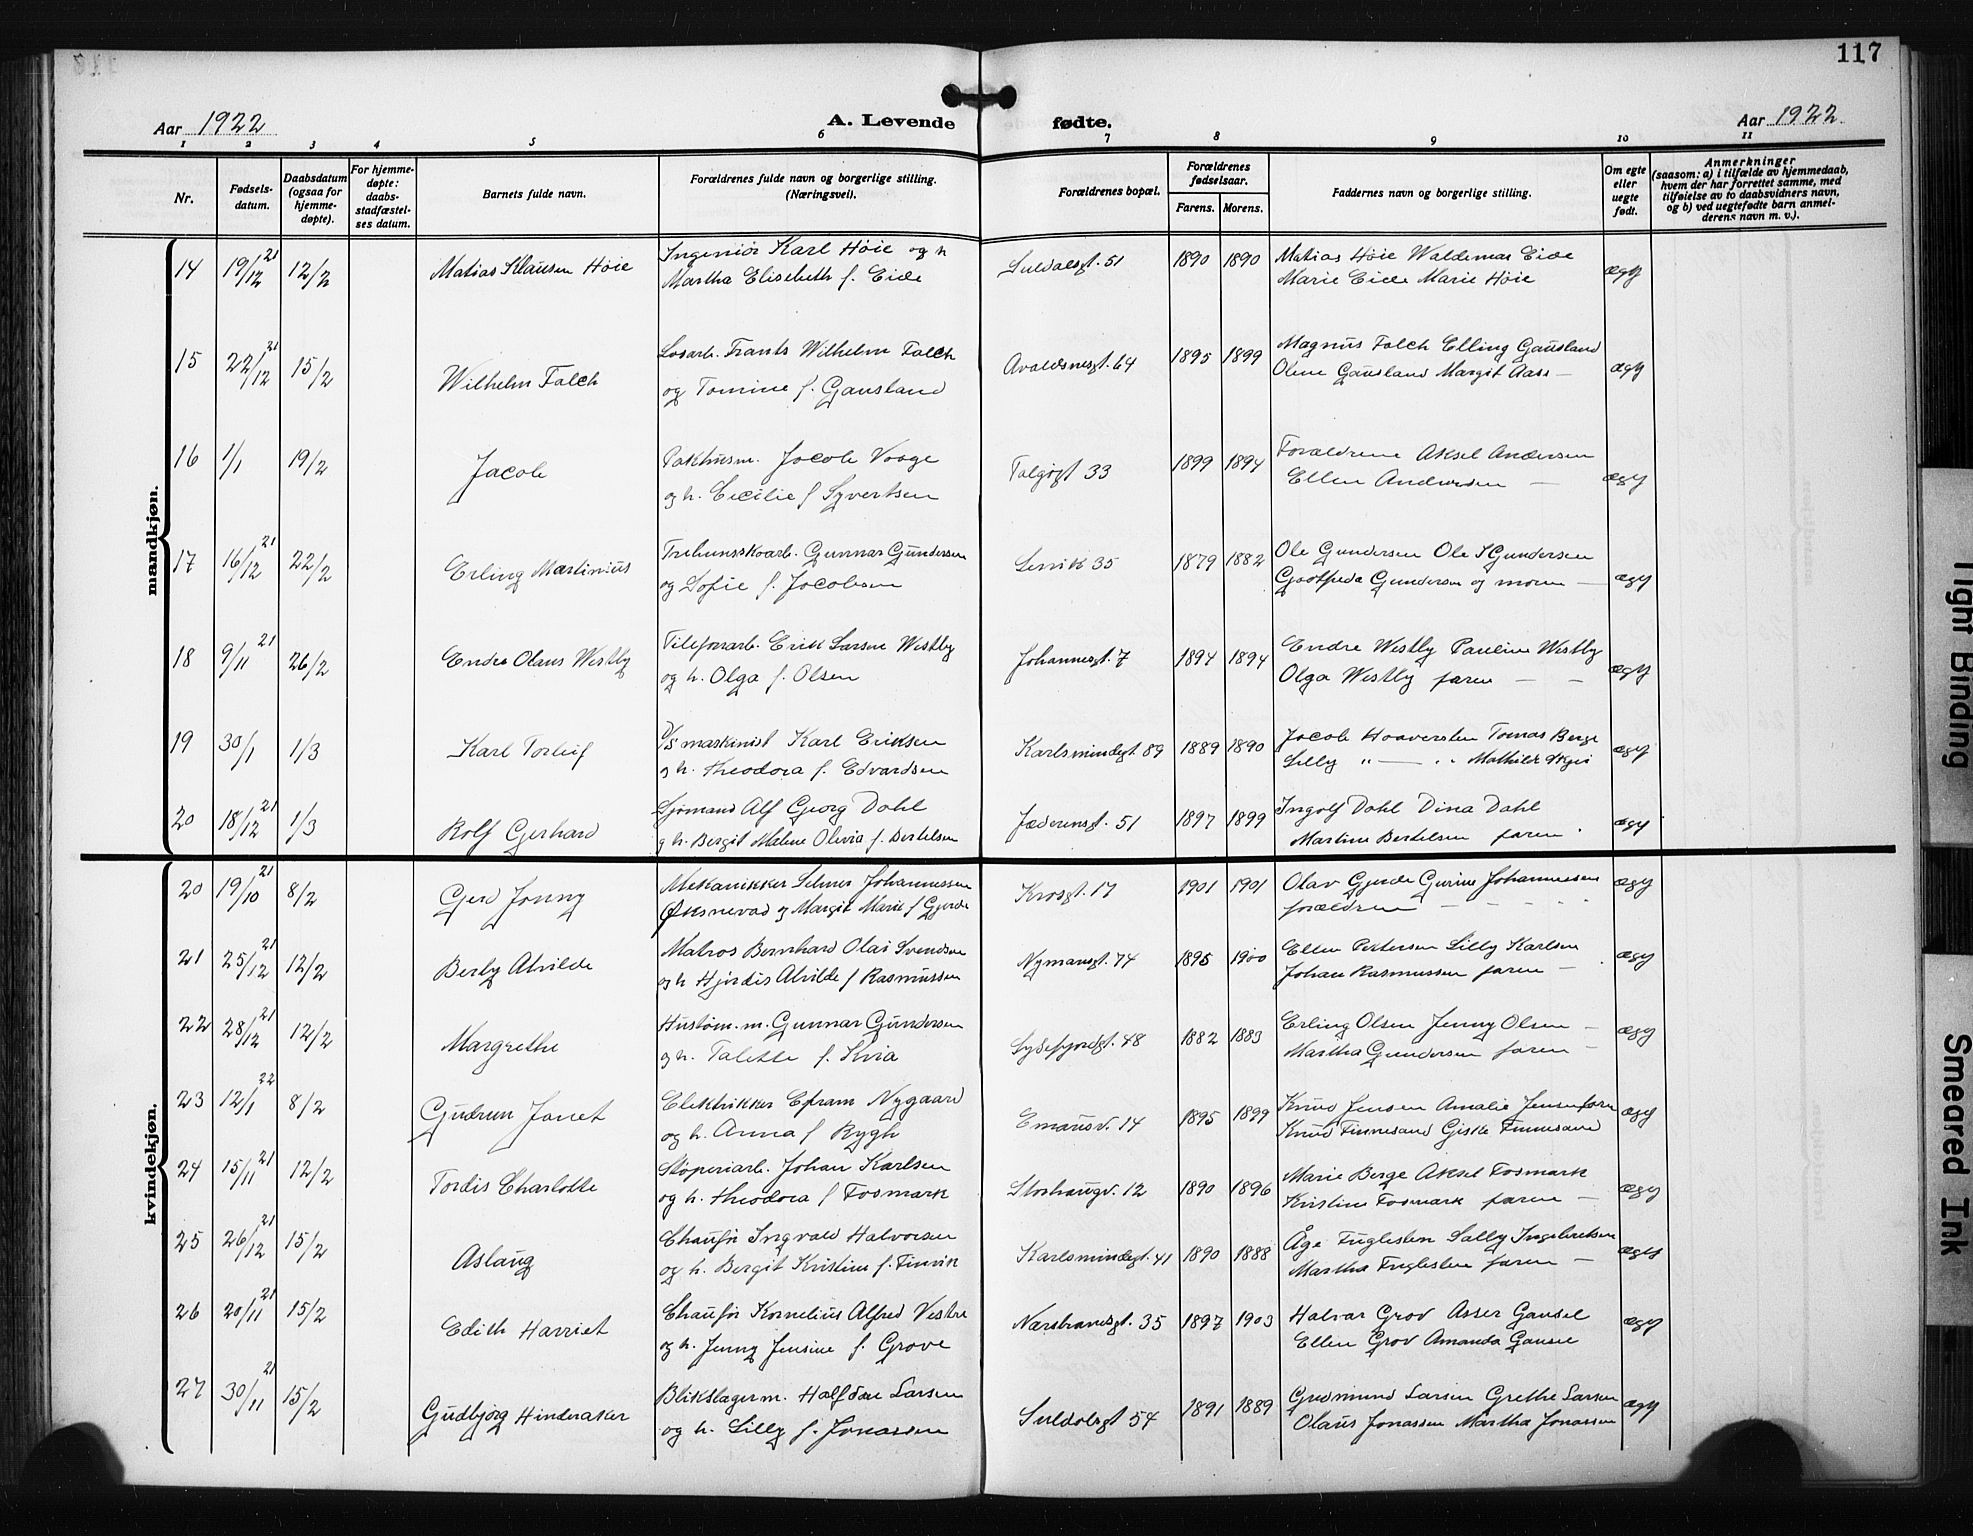 117
Aar 1922
A. Levende fødte.
Aar 1922.
1 2 3 4 5 6 7 8 9 10 11
Nr.
Fødsels-
datum.
Daabsdatum
(ogsaa for
hjemme-
døpte).
For hjemme-
døpte:
daabs-
stadfæstel-
ses datum.
Barnets fulde navn.
Forældrenes fulde navn og borgerlige stilling.
(Næringsvei).
Forældrenes bopæl.
Forældrenes
fødselsaar.
Farens. Morens.
Faddernes navn og borgerlige stilling.
Om egte
eller
uegte
født.
Anmerkninger
(saasom: a) i tilfælde av hjemmedaab,
hvem der har forrettet samme, med
tilføielse av to daabsvidners navn,
og b) ved uegtefødte barn anmel-
derens navn m. v.).
mandkjøn.
14 19/12 21 12/2 Matias Klausen Høie Ingeniør Karl Høie og h Suldalsgt. 51 1890 1890 Matias Høie Waldemar Eide ægt
Martha Elisebeth f. Eide Marie Eide Marie Høie
15 22/12 21 15/2 Wilhelm Falch Losarb. Frants Wilhelm Falch Avaldsnesgt. 64 1895 1899 Magnus Falch Elling Gausland ægt
og Tomine f. Gausland Oline Gausland Margit Aase –
16 1/1 19/2 Jacob Pakhusm. Jocob Vaage Talgøgt 33 1899 1894 Forældrene Aksel Andersen ægt
og h. Cecilie f Syvertsen Ellen Andersen –
17 16/12 21 22/2 Erling Martinius Gunnar Gundersen Lervik 35 1879 1882 Ole Gundersen Ole Gundersen ægt
og Sofie f. Jacobsen Gundersen og moren –
18 9/11 21 26/2 Endre Olaus Westby Telefonarb. Erik Larsen Westby Johannesgt. 7 1894 1894 Endre Westby Pauline Westby ægt
og h. Olga f. Olsen Olga Westby faren – –
19 30/1 1/3 Karl Torleif D/S maskinist Karl Eriksen Karlsmindegt. 89 1889 1890 Jacob Haaversten Tomas Berge ægt
og h. Theodora f. Edvardsen Lilly " — " Mathilde
20 18/12 21 1/3 Rolf Gerhard Sjømand Alf Georg Dahl Jæderensgt. 51 1897 1899 Ingolf Dahl Dina Dahl ægt
og h. Bergit Malene Olivia f. Bertelsen Martine Bertelsen faren
kvindekjøn.
20 19/10 21 8/2 Gerd Jonny Mekanikker Selmer Johannessen Krosgt. 17 1901 1901 Olav Gjerde Gurine Johannessen ægt
Øksnevad og Margit Marie f Gjerde forældrene – – –
21 25/12 21 12/2 Berly Alvilde Matros Bernhard Olai Svendsen Nymansgt. 74 1895 1900 Ellen Pettersen Lilly Karlsen ægt
og h Hjørdis Alvilde f Rasmussen Johan Rasmussen faren –
22 28/12 21 12/2 Margrethe Hustøm. m. Gunnar Gundersen Lysefjordgt. 48 1882 1883 Erling Olsen Jenny Olsen – ægt
og h. Talette f. Kvia Martha Gundersen faren –
23 12/1 22 8/2 Gudrun Janet Elektrikker Efram Nygaard Emausv. 14 1895 1899 Knud Jensen Amalie Jensen faren ægt
og h. Anna f Rygh Knud Finnesand Giske Finnesand
24 15/11 21 12/2 Tordis Charlotte Støperiarb. Johan Karlsen Storhaugv. 12 1890 1896 Marie Berge Aksel Fosmark ægt
og h. Theodora f Fosmark Kristine Fosmark faren –
25 26/12 21 15/2 Aslaug Chauför Ingvald Halvorsen Karlsmindegt. 41 1890 1888 Åge Fuglesten Sally Ingebretsen ægt
og h. Bergit Kristine f. Finvik Martha Fuglesten faren –
26 20/11 21 15/2 Edith Harriet Chauför Kornelius Alfred Vestre Nærstrandsgt. 35 1897 1903 Halvar Grov Asser Gausel ægt
og h. Jenny Jensine f. Grove Ellen Grov Amanda Gausel
27 30/11 21 15/2 Gudbjørg Hinderaker Blikslager m. Halfdan Larsen Suldalsgt 54 1891 1889 Gudmund Larsen Grethe Larsen ægt
og h. Lilly f. Jonassen Olaus Jonassen Martha Jonassen
Tight Binding
Smeared Ink